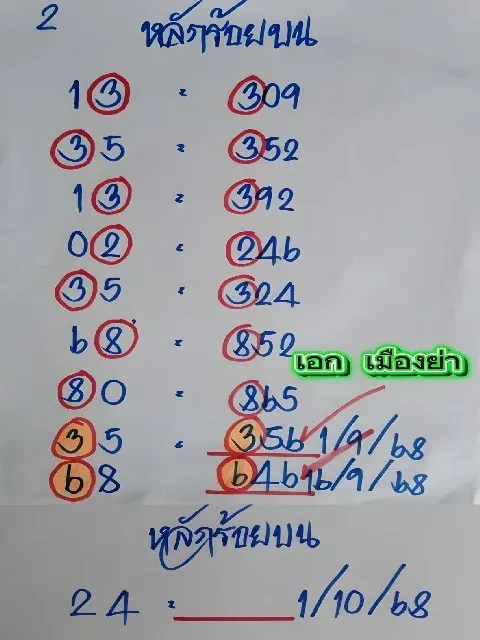 2
หลักร้อยบน
13 = 309
35 = 352
13 = 392
02 = 246
35 = 324
68 = 852
เอก เมืองย่า
80 = 865
35 = 356 1/9/68
68 646 16/9/68
หลักร้อยบน
24 = 1/10/68